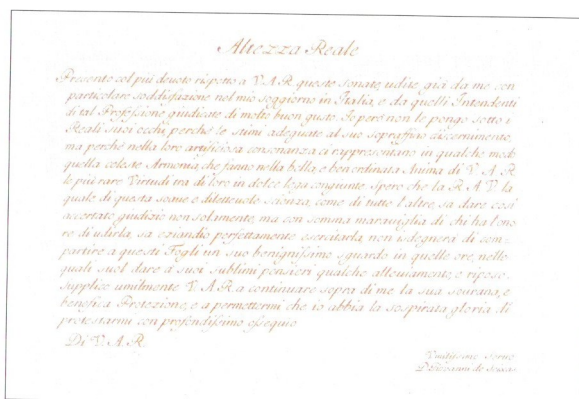 Altezza Reale
Presento col più devoto rispetto a V. A. R. queste sonate, udite già da me con
particolare soddisfazione nel mio soggiorno in Italia, e da quelli Intendenti
di tal Professione giudicate di molto buon gusto. Io però non le pongo sotto i
Reali suoi occhi, perchè le stimi adeguate al suo soprafino discernimento,
ma perchè nella loro artifiziosa consonanza ci rappresentano in qualche modo
quella celeste Armonia, che fanno nella bella, e ben ordinata Anima di V. A. R.
le più rare Virtudi tra di loro in dolce lega congiunte. Spero che la R. A. V. la
quale di questa soave e dilettevole scienza, come di tutte l'altre, sa dare così
accertato giudizio non solamente, ma con somma maraviglia di chi ha l'ono
re di udirla, sa eziandio perfettamente esercitarla, non isdegnerà di com-
partire a questi Fogli un suo benignissimo sguardo in quelle ore, nelle
quali suol dare a' suoi sublimi pensieri qualche alleviamento, e riposo.
Supplico umilmente V. A. R. a continuare sopra di me la sua sovrana, e
benefica Protezione, e a permettermi che io abbia la sospirata gloria di
protestarmi con profondissimo ossequio
Di V. A. R.
Umilissimo Servo
D. Giovanni de Seixas